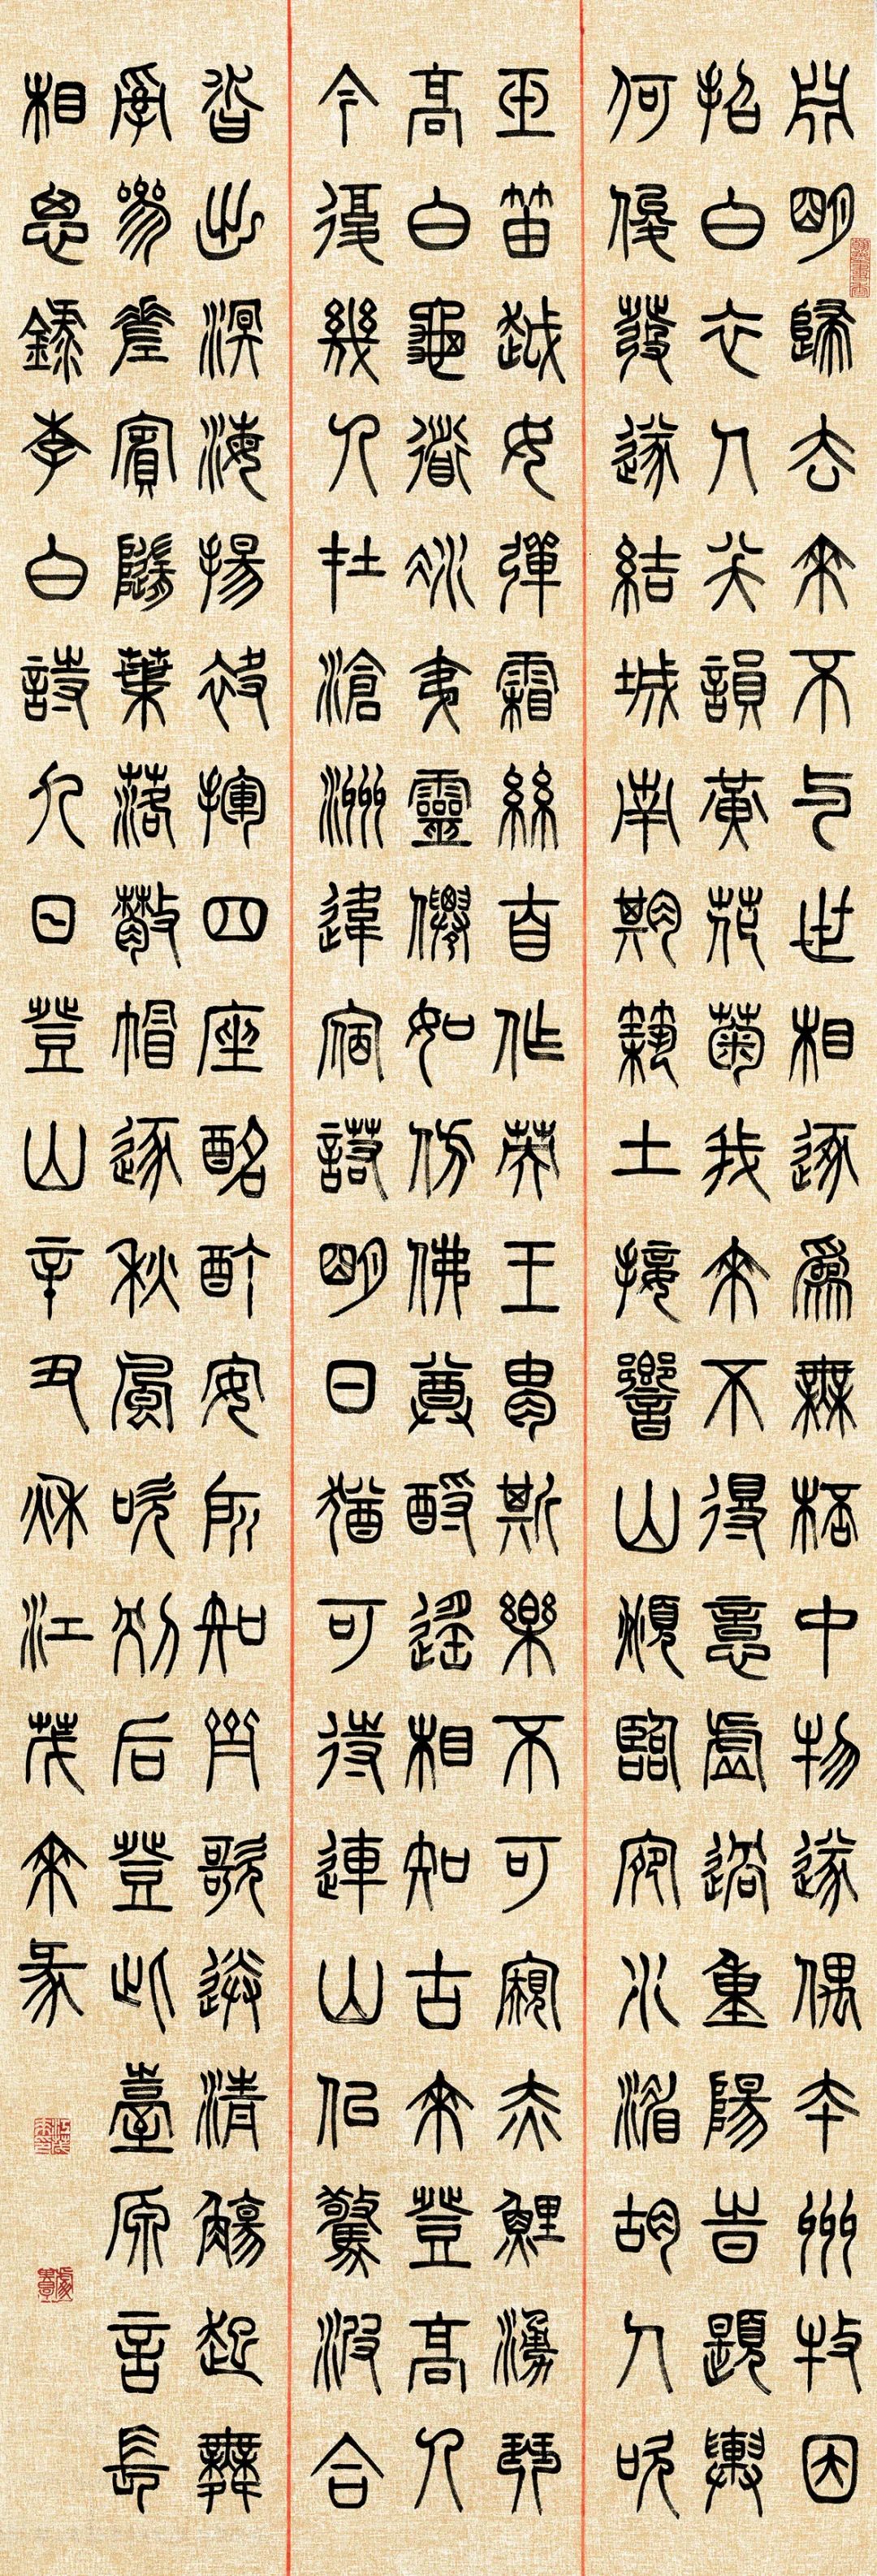 淵明歸去來不与世相逐爲無桮中物遂偶本州牧因
招白衣人笑韻黃花菊我來不得意虛過重陽時題輿
何俊發遂結城南期築土接響山頫臨宛水湄胡人吹
玉笛越女彈霜絲自作英王胄斯樂不可窺赤鯉湧琴
高白龜道冰夷靈僊如仿佛奠酹遙相知古來登高人
今復幾人在滄洲違宿諾明日猶可待連山似驚波合
沓出溟海揚袂揮四座酩酊安所知齊歌送清觴起舞
亂參差賓隨葉落散帽逐秋風吹別后登此臺原言長
相思錄李白詩九日登山辛丑秋江茂來篆